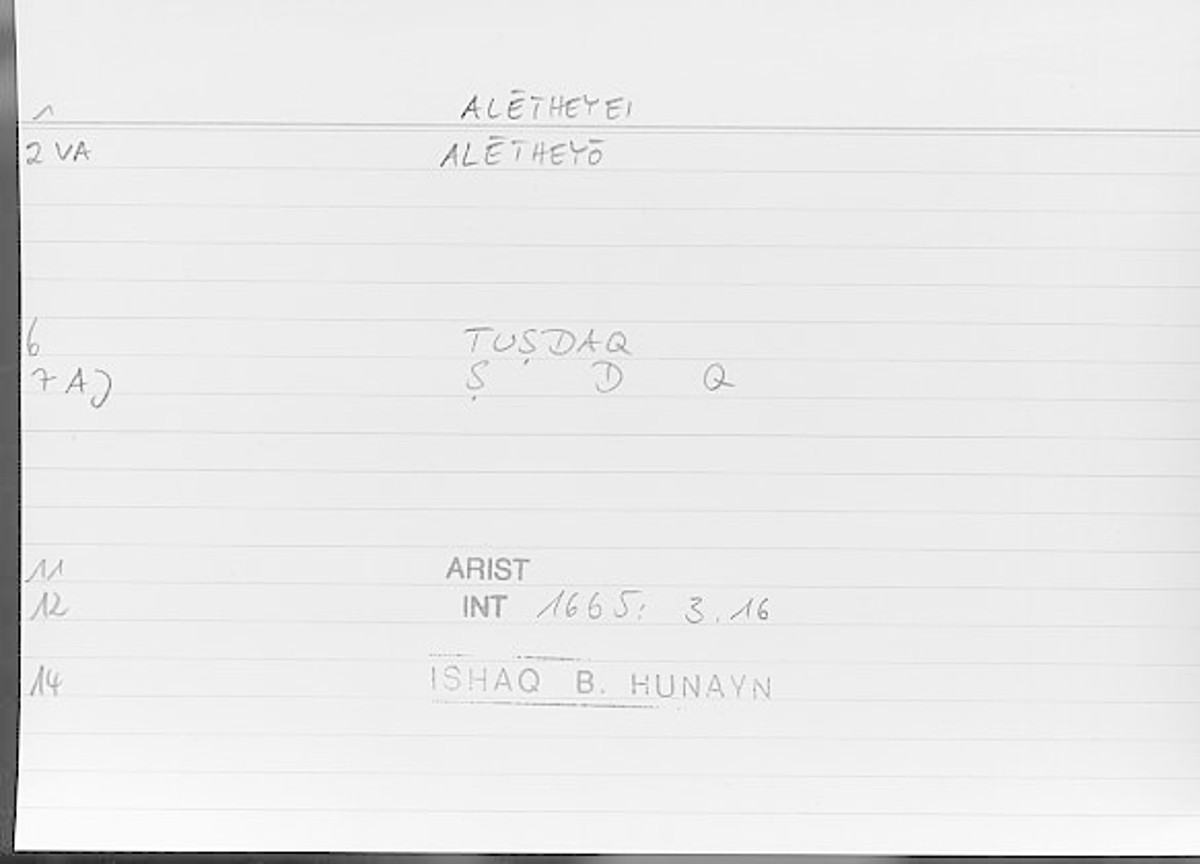 1 ALĒTHEYEI
2 VA ALĒTHEYŌ
6 TUṢDAQ
7 AJ Ṣ D Q
11 ARIST
12 INT 1665: 3.16
14 ISHAQ B. HUNAYN